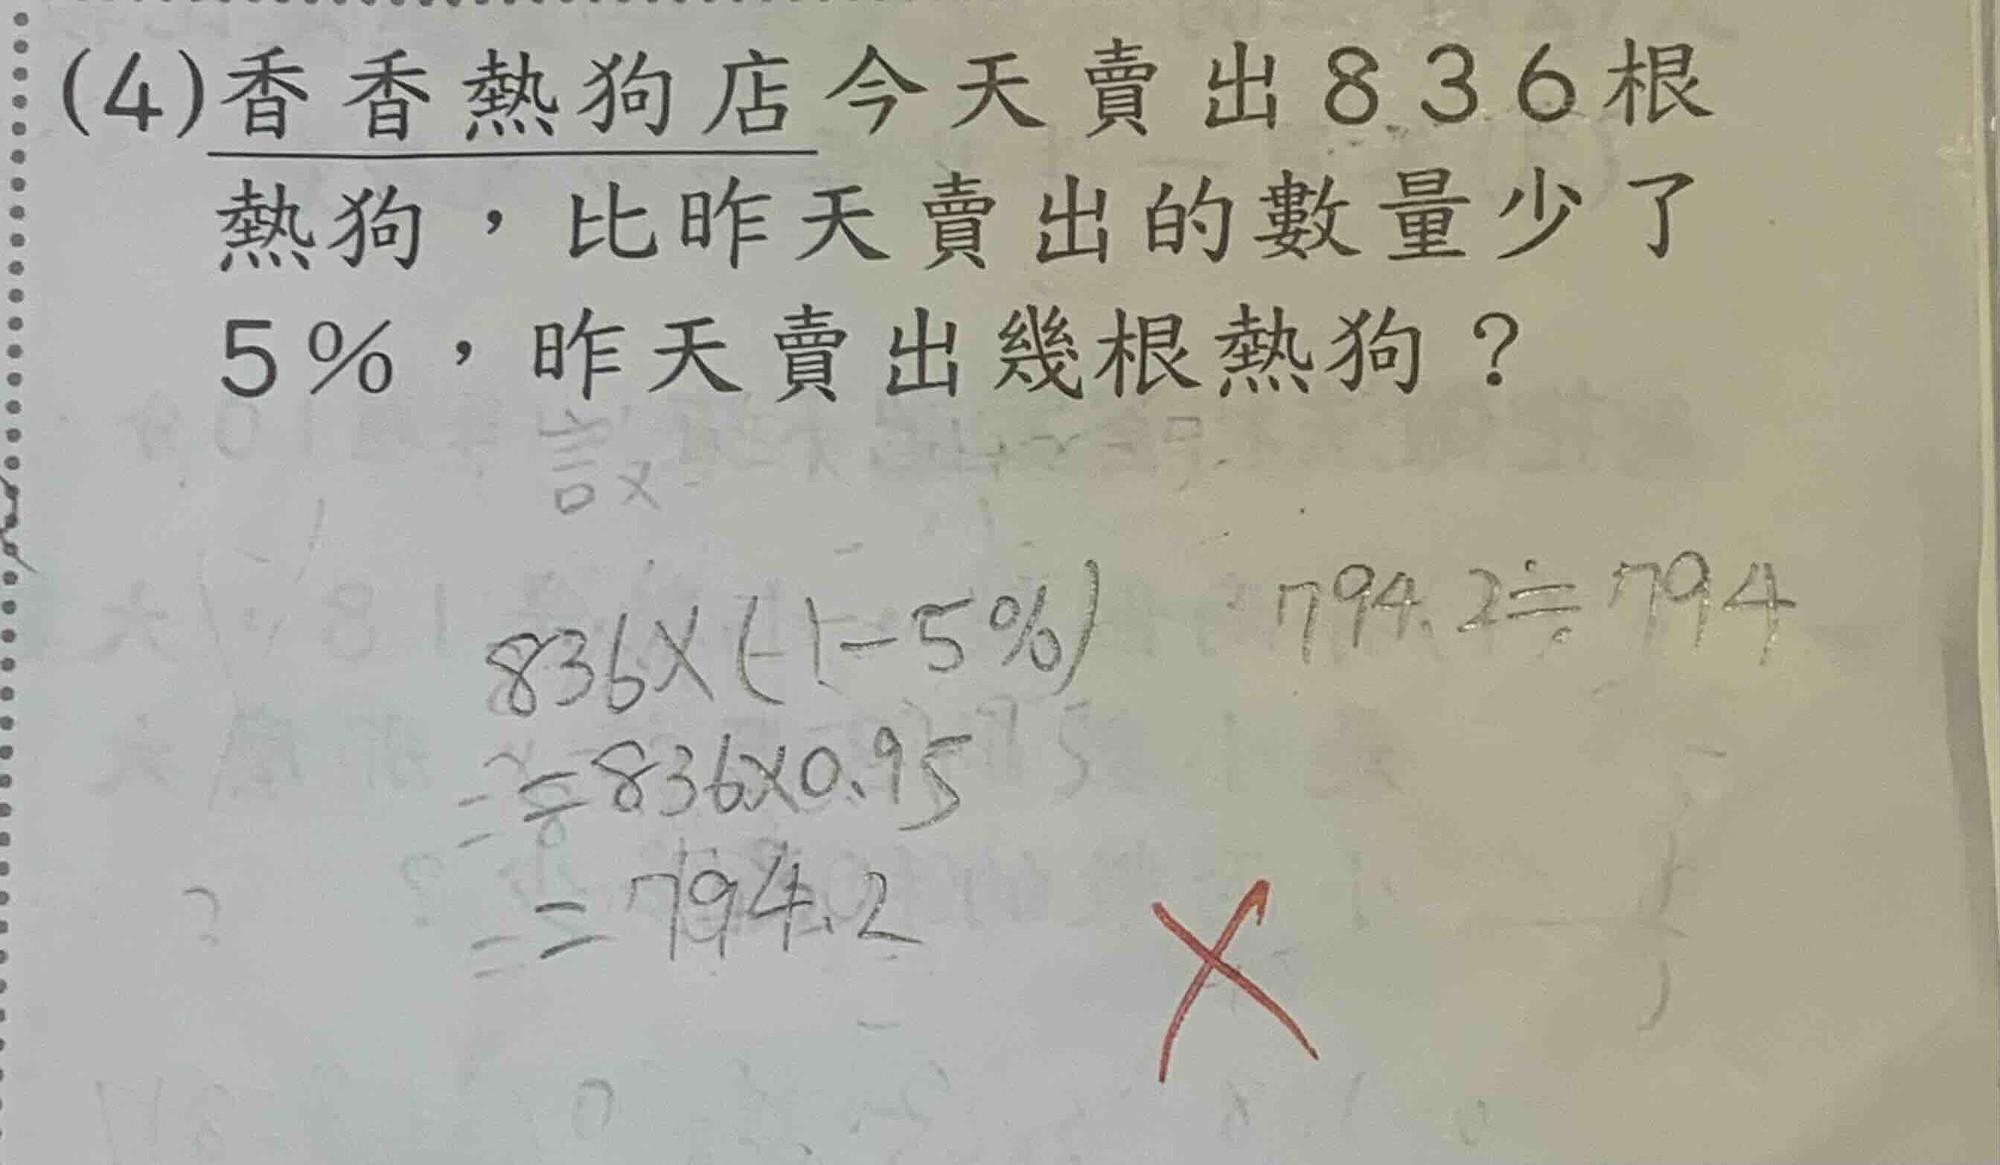 (4)香香熱狗店今天賣出836根
熱狗，比昨天賣出的數量少了
5%，昨天賣出幾根熱狗？
836×(1-5%)
=836×0.95
=794.2
794.2≒794